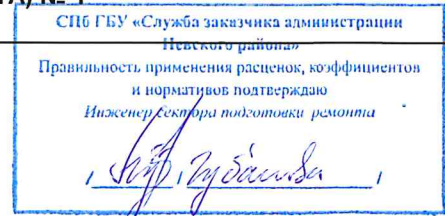 № 1
СПб ГБУ «Служба заказчика администрации
Невского района»
Правильность применения расценок, коэффициентов
и нормативов подтверждаю
Инженер Сектора подготовки ремонта
/ / /